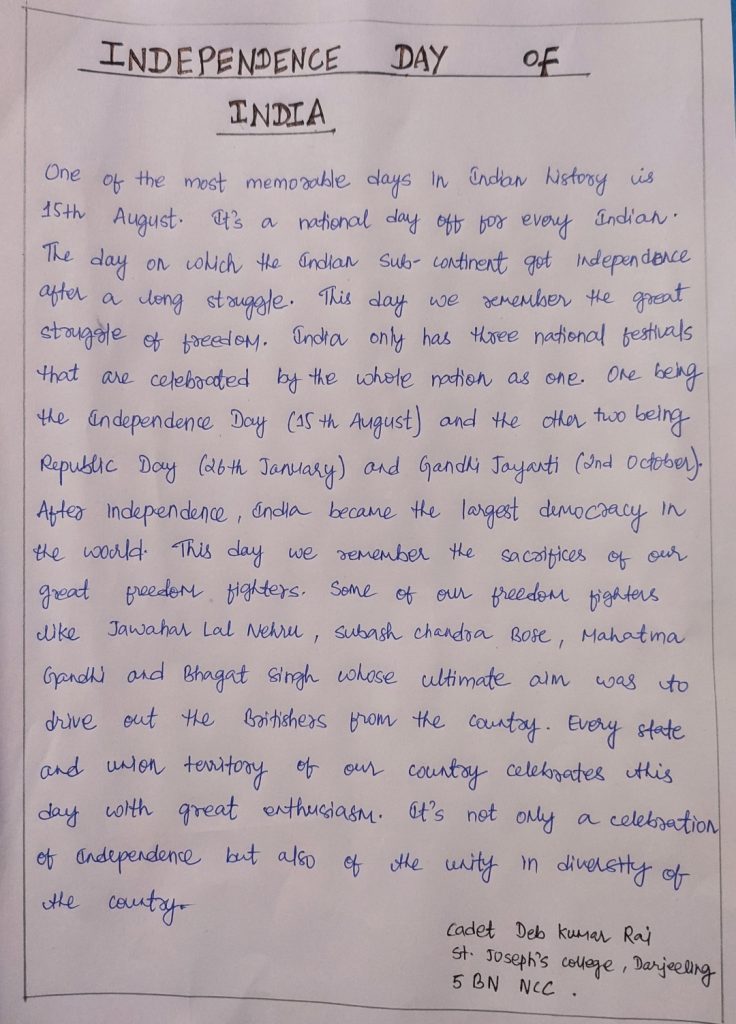 INDEPENDENCE DAY OF
INDIA
One of the most memorable days in Indian history is
15th August. It's a national day off for every Indian.
The day on which the Indian Sub-continent got independence
after a long struggle. This day we remember the great
struggle of freedom. India only has three national festivals
that are celebrated by the whole nation as one. One being
the Independence Day (15th August) and the other two being
Republic Day (26th January) and Gandhi Jayanti (2nd October).
After independence, India became the largest democracy in
the world. This day we remember the sacrifices of our
great freedom fighters. Some of our freedom fighters
like Jawahar Lal Nehru, Subash Chandra Bose, Mahatma
Gandhi and Bhagat Singh whose ultimate aim was to
drive out the Britishers from the country. Every state
and union territory of our country celebrates this
day with great enthusiasm. It's not only a celebration
of Independence but also of the unity in diverstty of
the country.
Cadet Deb Kumar Rai
St. Joseph's college, Darjeeling
5 BN NCC.